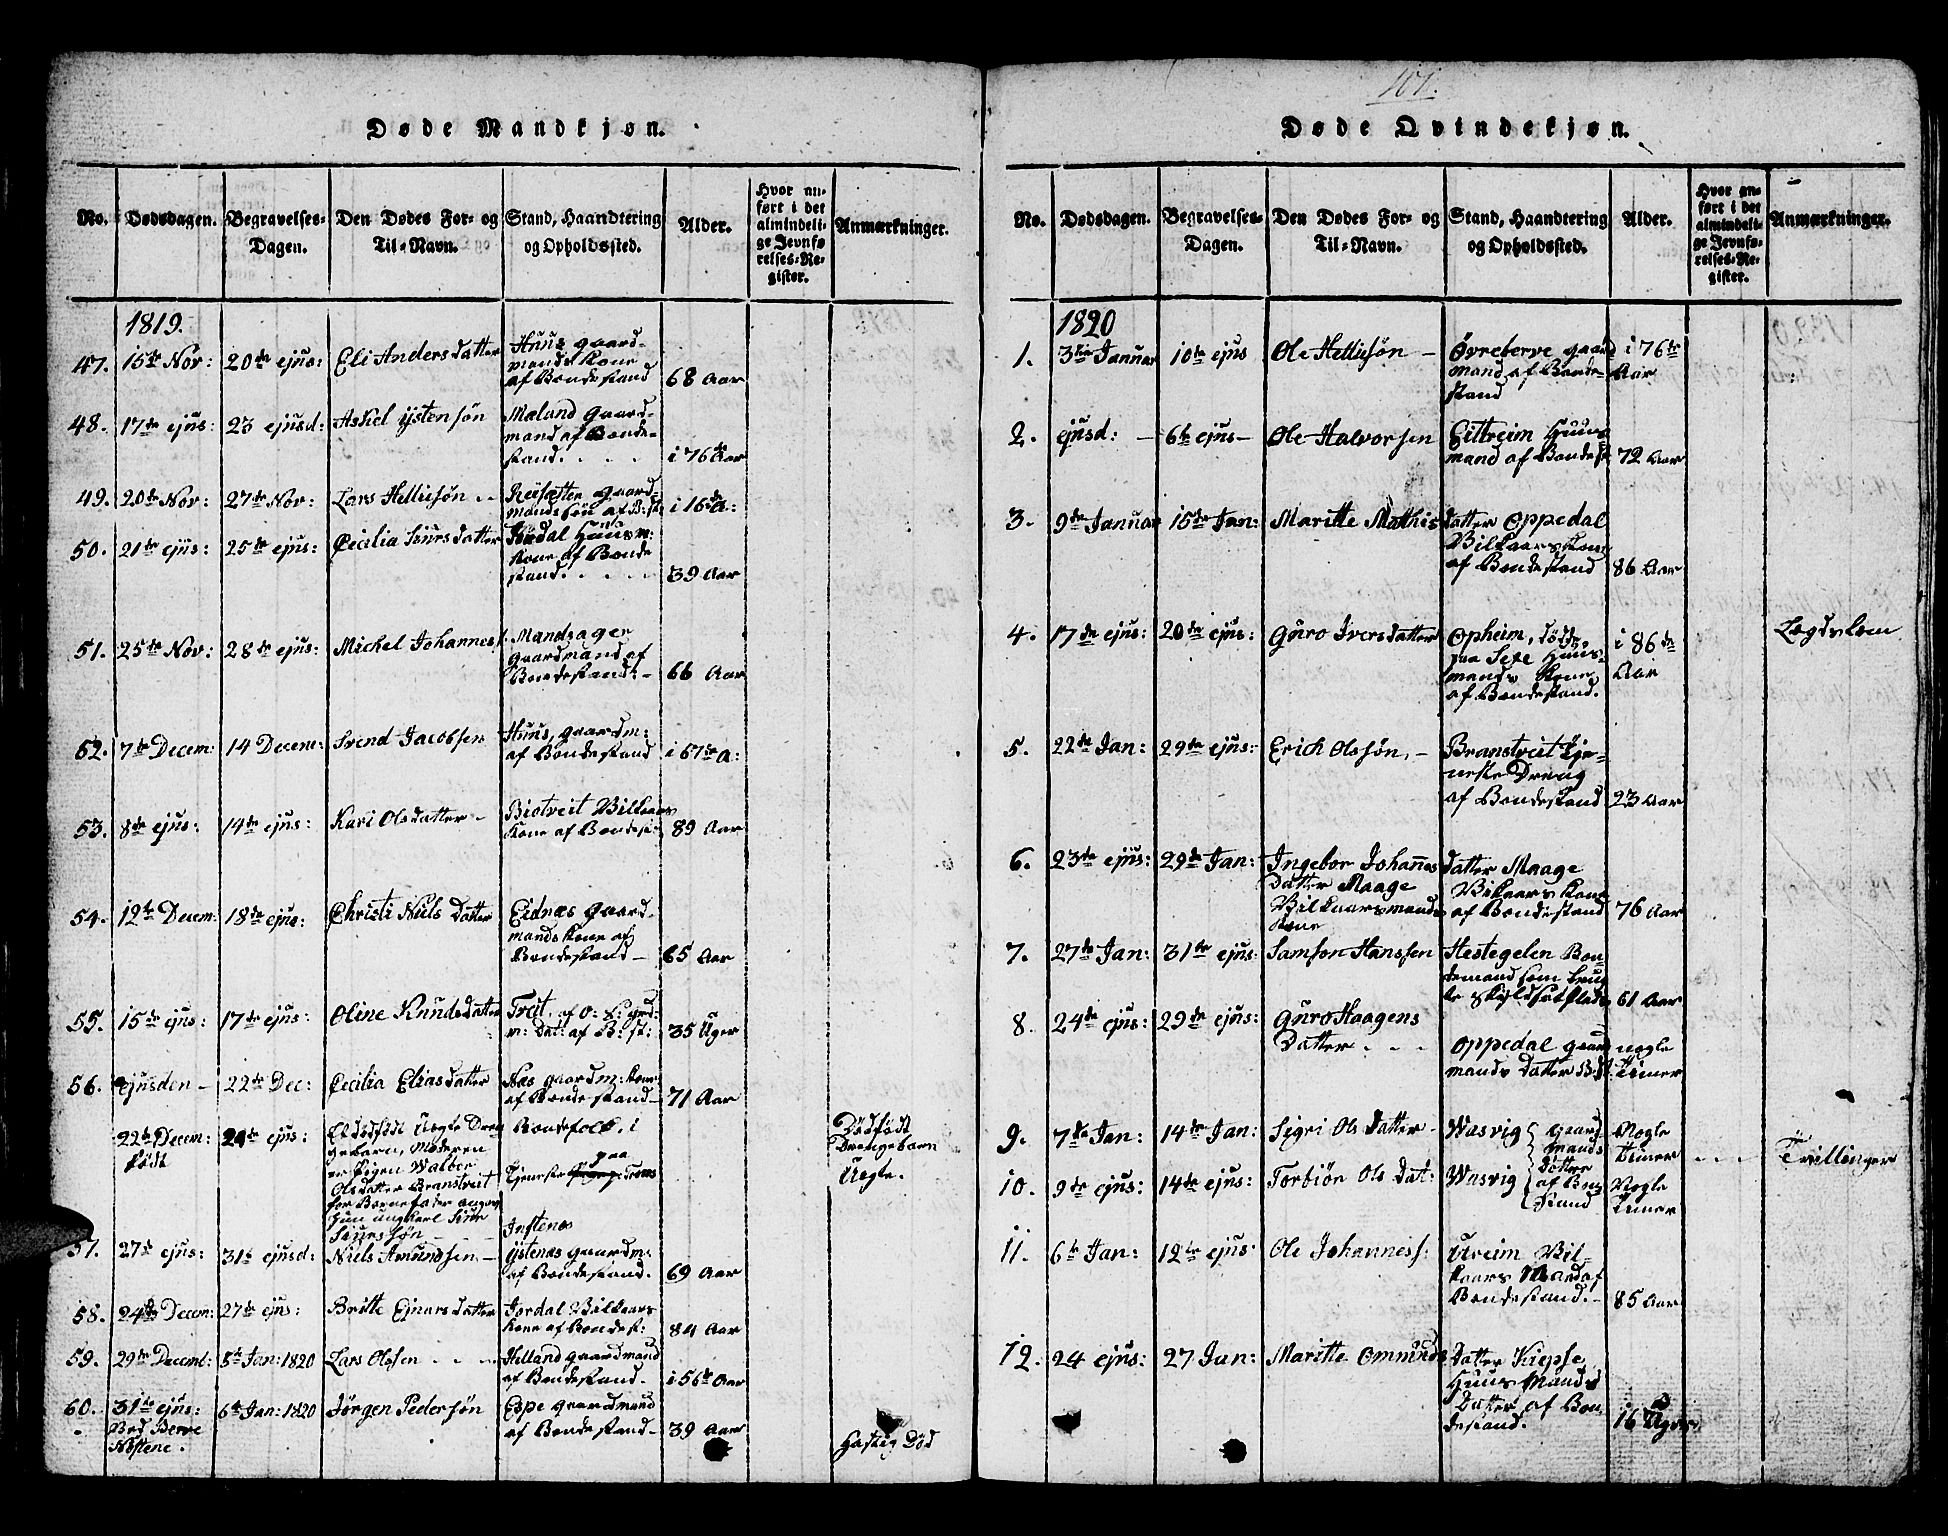 Døde Mandkjøn.
No. Dødsdagen. Begravelses-Dagen. Den Dødes For- og Til-Navn. Stand, Haandtering og Opholdssted. Alder. Hvor anført i det almindelige Jevnførelses-Register. Anmærkninger.
1819.
47. 15de Nov: 20de ejus: Eli Andersdatter Huus gaard-
mands Kone
af Bondestand 68 Aar
48. 17de ejus: 23 ejusd: Askel ystensøn Maland Gaard-
mand af Bonde-
stand. i 76de Aar
49. 20de Nov: 27de Nov: Lars Hellisøn Reisæter gaard-
mands søn af B: st: i 16de A:
50. 21de ejus: 25de ejus: Cecilia Siursdatter Huusm:
Kone af Bonde
stand. 39 Aar
51. 25de Nov: 28de ejus: Michel Johannes: Mandsager
gaardmand af
Bondestand: 66 Aar
52. 7de Decem: 14 Decem: Svend Jacobsen Huus, gaardm:
af Bondestand i 67de A:
53. 8de ejus: 14de ejus: Kari Olsdatter Biotveit Vilkaars
Kone af Bondest: 89 Aar
54. 12te Decem: 18de ejus: Christi Niels datter Eidnæs gaard-
mands Kone af
Bondestand 65 Aar
55. 15de ejus: 17de ejus: Oline Knudsdatter Treit, af O: K: grd-
m: Dat: af B: st: 35 Uger
56. ejusden 22de Dec: Cecilia Eliasdatter Næs gaardm: Kone
af Bondestand 71 Aar
22de Decem: født 24de ejus: Et dødfødt Uægte Dren-
gebarn, Moderen
er Pigen Walbor
Olsdatter Branstveit
for Barnefader angav
hun ungkarl Siur
Siurssøn
Bondefolk, i
Tjeneste paa
Dødfødt
Drengebarn
Uægte.
57. 27de ejus: 31te ejusd: Niels Amundsen Instenæs
ystenæs gaardm:
af Bondestand. 69 Aar
58. 24de Decem: 27de ejus: Britte Ejnarsdatter Jordal Vilkaars
Kone af Bondest: 84 Aar
59. 29de Decemb: 5te Jan: 1820 Lars Olssen Helland gaardmand
af Bondestand. i 56de Aar
60. 31te ejus: 6te Jan: 1820 Jørgen Pedersøn Espe gaardmand
Ved Berve
Nøstene. af Bondestand 39 Aar Hastig Død
101.
Døde Qvindekjøn.
No. Dødsdagen. Begravelses-Dagen. Den Dødes For- og Til-Navn. Stand, Haandtering og Opholdssted. Alder. Hvor anført i det almindelige Jevnførelses-Register. Anmærkninger.
1820
1. 3die Januar 10de ejus Ole Hellisøn Øvreberve gaard
mand af Bonde-
stand i 76de Aar
2. ejusd: 6te ejus Ole Halvorsen Eittreim Huus
mand af Bondest 72 Aar
3. 9de Januar 15de Jan: Maritte Mathisdatter Oppedal
Vilkaars Kone
af Bondestand 86 Aar
4. 17de ejus: 20de ejus: Guro Iversdatter Opheim, døde
paa Sexe Huus-
mands Kone
af Bondestand. i 86de Aar Lægdslem
5. 22de Jan: 29de ejus: Erich Olssøn, Branstveit Tje-
neste Dreng
af Bondestand 23 Aar
6. 23de ejus: 29de Jan: Ingebor Johannes datter Maage
Datter Maage
Vilkaarsmands
Kone
Vilkaars Kone
af Bondestand 76 Aar
7. 27de Jan: 31te ejus: Samson Hanssen Hestegelen Bon-
demand som brug
te skyldsat Plads 61 Aar
8. 24de ejus: 29de ejus: Guro Haagens
Datter Oppedal gaard
mands datter B: st: nogle Timer
9. 7de Jan: 14de Jan: Sigri Ols datter Wasvig Gaard
mands
Døttre
af Bon
Stand Nogle Timer Tvillinger
10. 9de ejus: 14de ejus: Torbiør Ols dat: Wasvig Nogle Timer
11. 6te Jan: 12te ejus: Ole Johanness: Ureim Vil-
kaars Mand af
Bondestand. 85 Aar
12. 24 ejus: 27 Jan: Maritte Omunds datter Kiepse,
Huus Mands
Datter af Bon-
destand. 16 Uger